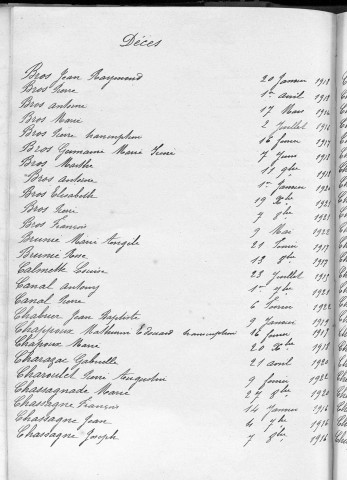 Décès
Bros Jean Raymond 20 Janvier 1918
Bros Pierre 1er Avril 1918
Bros Antoine 17 Mars 1916
Bros Marie 2 Juillet 1916
Bros Pierre transcription 16 février 1917
Bros Germaine Marie 7 Juin 1918
Bros Marthe 11 9bre 1918
Bros Antoine 1er Janvier 1920
Bros Elisabeth 19 Xbre 1921
Bros 7 8bre 1921
Bros François 9 Mai 1922
Brunie Marie Angèle 21 février 1917
Brunie 13 8bre 1919
Calmette Louise 23 Juillet 1915
Canal Antony 1er 9bre 1921
Canal Pierre 6 février 1922
Chabrier Jean Baptiste 9 Janvier 1919
Chappoux Mathurin Edouard transcription 16 Juin 1917
Chapoux Marie 20 Xbre 1918
Charazac Gabrielle 21 Avril 1920
Charoulet Pierre Augustin 9 février 1922
Chassagnade Marie 27 8bre 1920
Chassagne François 14 Janvier 1916
Chassagne Jean 4 7bre 1916
Chassagne Joseph 7 8bre 1916